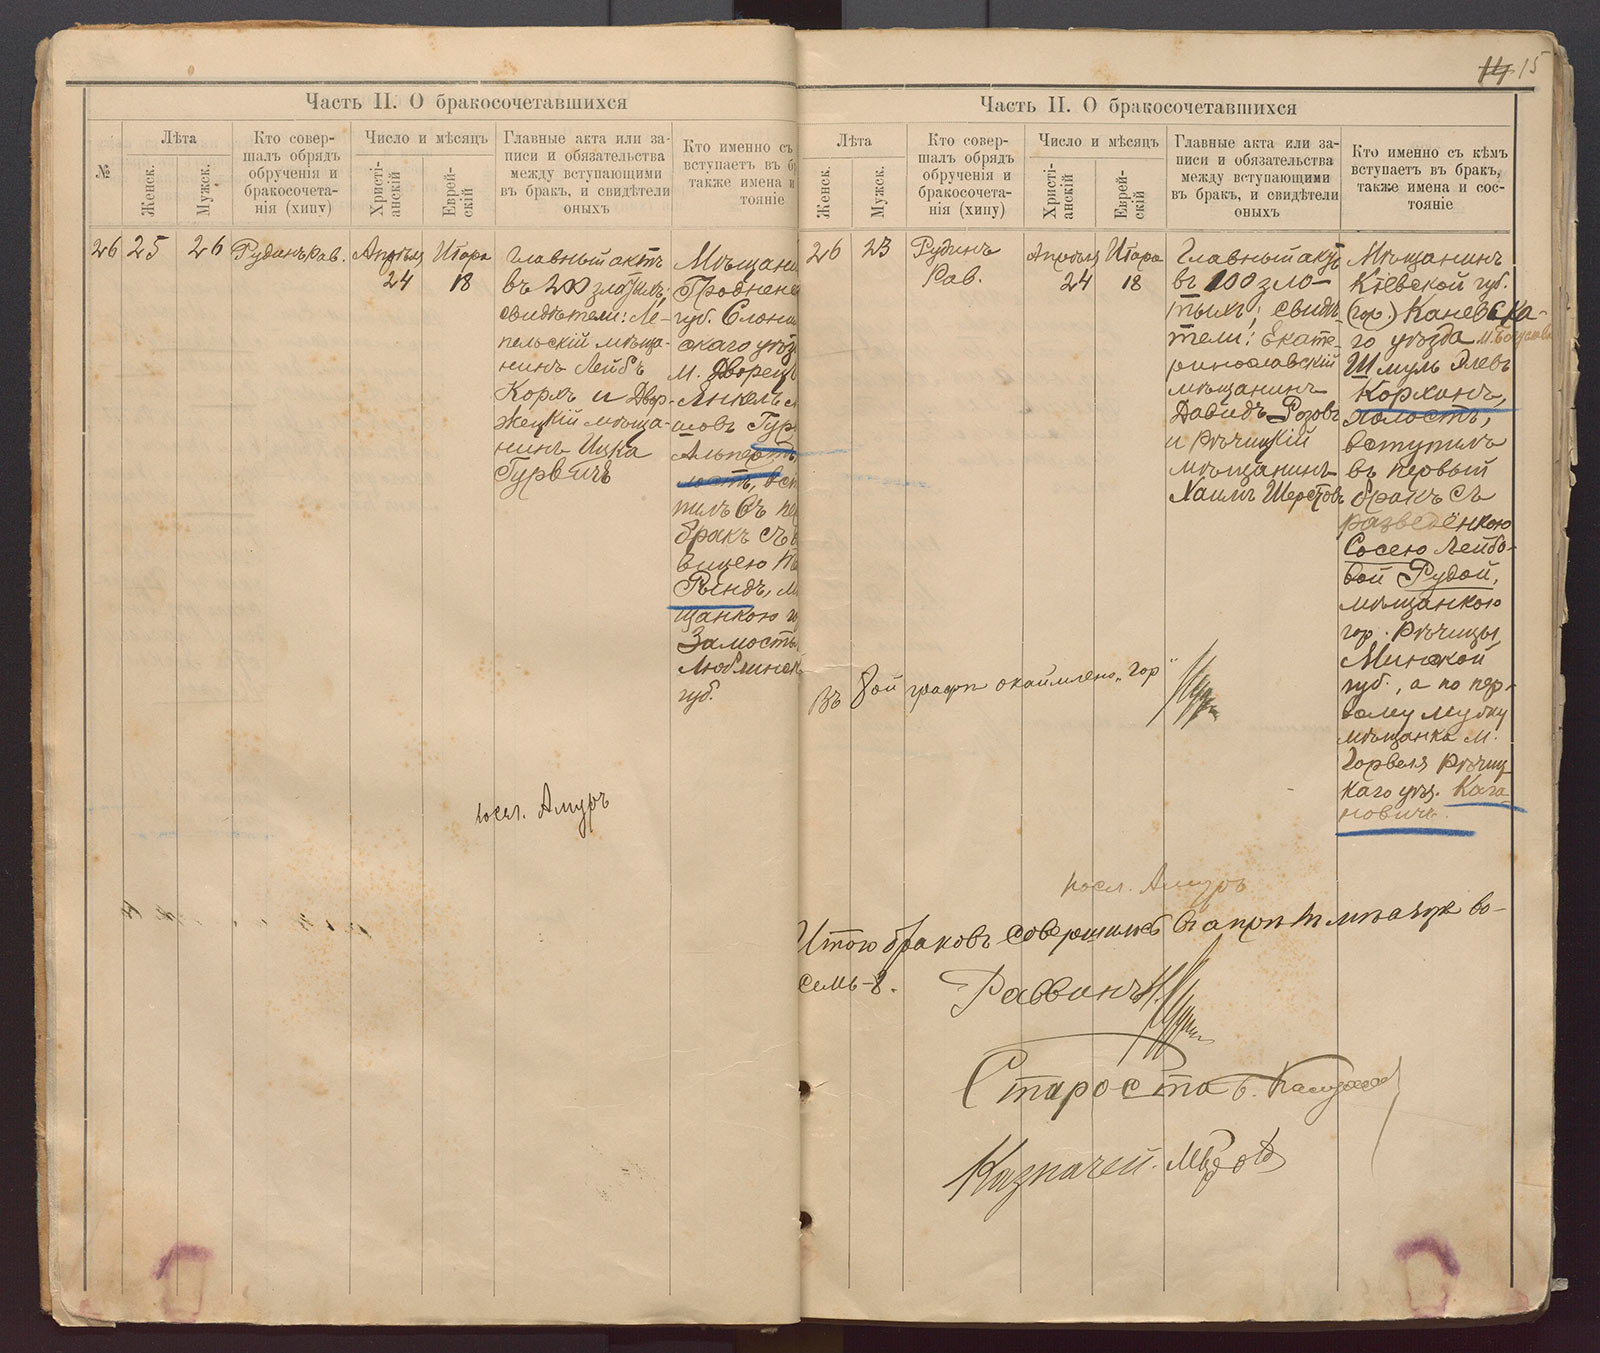 Часть II. О бракосочетавшихся
№
Лѣта
Женск.
Мужск.
Кто совер-
шалъ обрядъ
обрученія и
бракосочета-
нія (хипу)
Число и мѣсяцъ
Христі-
анскій
Еврей-
скій
Главные акта или за-
писи и обязательства
между вступающими
въ бракъ, и свидѣтели
оныхъ
Кто именно съ
вступаетъ въ б
также имена и
тояніе
26
25
26
Рудинъ Рав.
Апрѣля
24
Иіара
18
Главный актъ
въ 200 злотыхъ;
свидѣтели: Ле-
пельскій мѣща-
нинъ Лейбъ
Корлъ и Двор-
жецкій мѣща-
нинъ Ицка
Гурвичъ
Мѣщани
Гроднен
губ. Слоним
скаго уѣз
м. Дворец
Янкель
шовъ Гур
Альперт
лостъ, вст
пилъ въ пе
бракъ съ
вицею
Рындъ, м
щанкою г
Замость
Люблинск
губ.
посл. Амуръ
14 15
Часть II. О бракосочетавшихся
Лѣта
Женск.
Мужск.
Кто совер-
шалъ обрядъ
обрученія и
бракосочета-
нія (хипу)
Число и мѣсяцъ
Христі-
анскій
Еврей-
скій
Главные акта или за-
писи и обязательства
между вступающими
въ бракъ, и свидѣтели
оныхъ
Кто именно съ кѣмъ
вступаетъ въ бракъ,
также имена и сос-
тояніе
26
23
Рудинъ
Рав.
Апрѣля
24
Иіара
18
Главный актъ
въ 100 зло-
тыхъ; свидѣ
тели: Екате
ринославскій
мѣщанинъ
Давидъ Розовъ
и Рѣчицкій
мѣщанинъ
Хаимъ Шерстовъ
Мѣщанинъ
Кіевской губ.
(гор.) Каневска-
го уѣзда
Шмуль Элевъ
Корханъ,
холостъ,
вступилъ
въ первый
бракъ съ
разведёнкою
Сосею Лейбо-
вой Рудой,
мѣщанкою
гор. Рѣчицы,
Минской
губ., а по пер-
вому мужу
мѣщанка м.
Горвеля Рѣчиц-
каго уѣз. Кага-
новичъ.
Въ 8ой графѣ окаймлено „гор"
посл. Амуръ
Итого браковъ совершилось въ апрѣлѣ мѣсяцѣ во-
семь-8.
Раввинъ
Староста
Казначей.